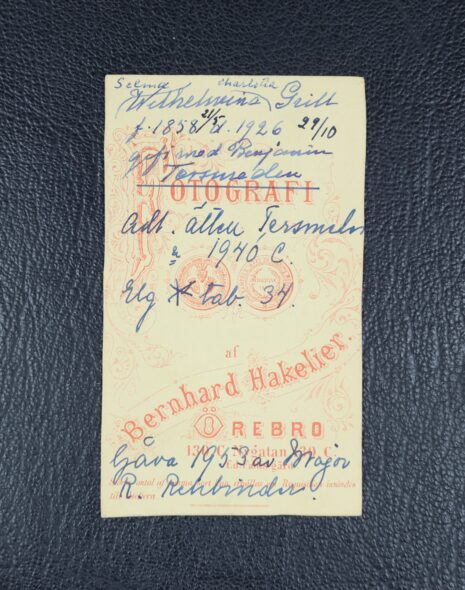 Selma Charlotta
Wilhelmina Grill
f. 1858 21/5 d. 1926 29/10
gift med Benjamin
Tersmeden
FOTOGRAFI
Adl. ätten Tersmeden
n 1940 C.
Elg tab. 34.
af
Bernhard Hakelier.
ÖREBRO
139 C Nygatan 139 C
Gåva 1953 av Major
R. Rehbinder.